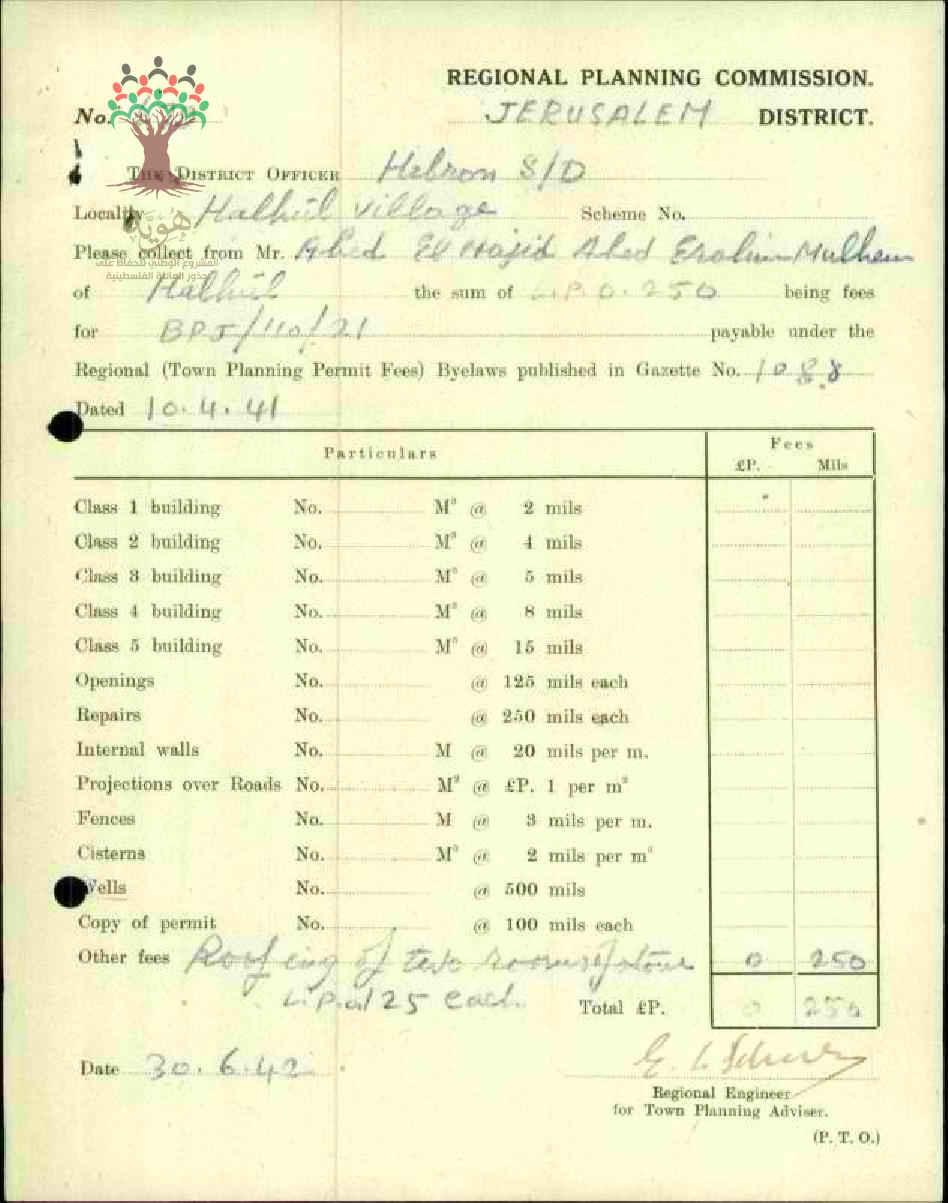 REGIONAL PLANNING COMMISSION.
No. JERUSALEM DISTRICT.
THE DISTRICT OFFICER Hebron S/D
Locality Halhūl village Scheme No.
Please collect from Mr. Abed El Majid Abed Mulhem
هُويَّة
المشروع الوطني للحفاظ على
جذور العائلة الفلسطينية
of Halhūl the sum of L.P. 0.250 being fees
for BPJ/110/21 payable under the
Regional (Town Planning Permit Fees) Byelaws published in Gazette No. 1088
Dated 10.4.41
Particulars Fees
£P. Mils
Class 1 building No. M² @ 2 mils
Class 2 building No. M² @ 4 mils
Class 3 building No. M² @ 5 mils
Class 4 building No. M² @ 8 mils
Class 5 building No. M² @ 15 mils
Openings No. @ 125 mils each
Repairs No. @ 250 mils each
Internal walls No. M @ 20 mils per m.
Projections over Roads No. M² @ £P. 1 per m²
Fences No. M @ 3 mils per m.
Cisterns No. M³ @ 2 mils per m³
Wells No. @ 500 mils
Copy of permit No. @ 100 mils each
Other fees Roofing of two rooms of stone 0 250
125 each. Total £P. 0 250
Date 30.6.42
Regional Engineer
for Town Planning Adviser.
(P. T. O.)